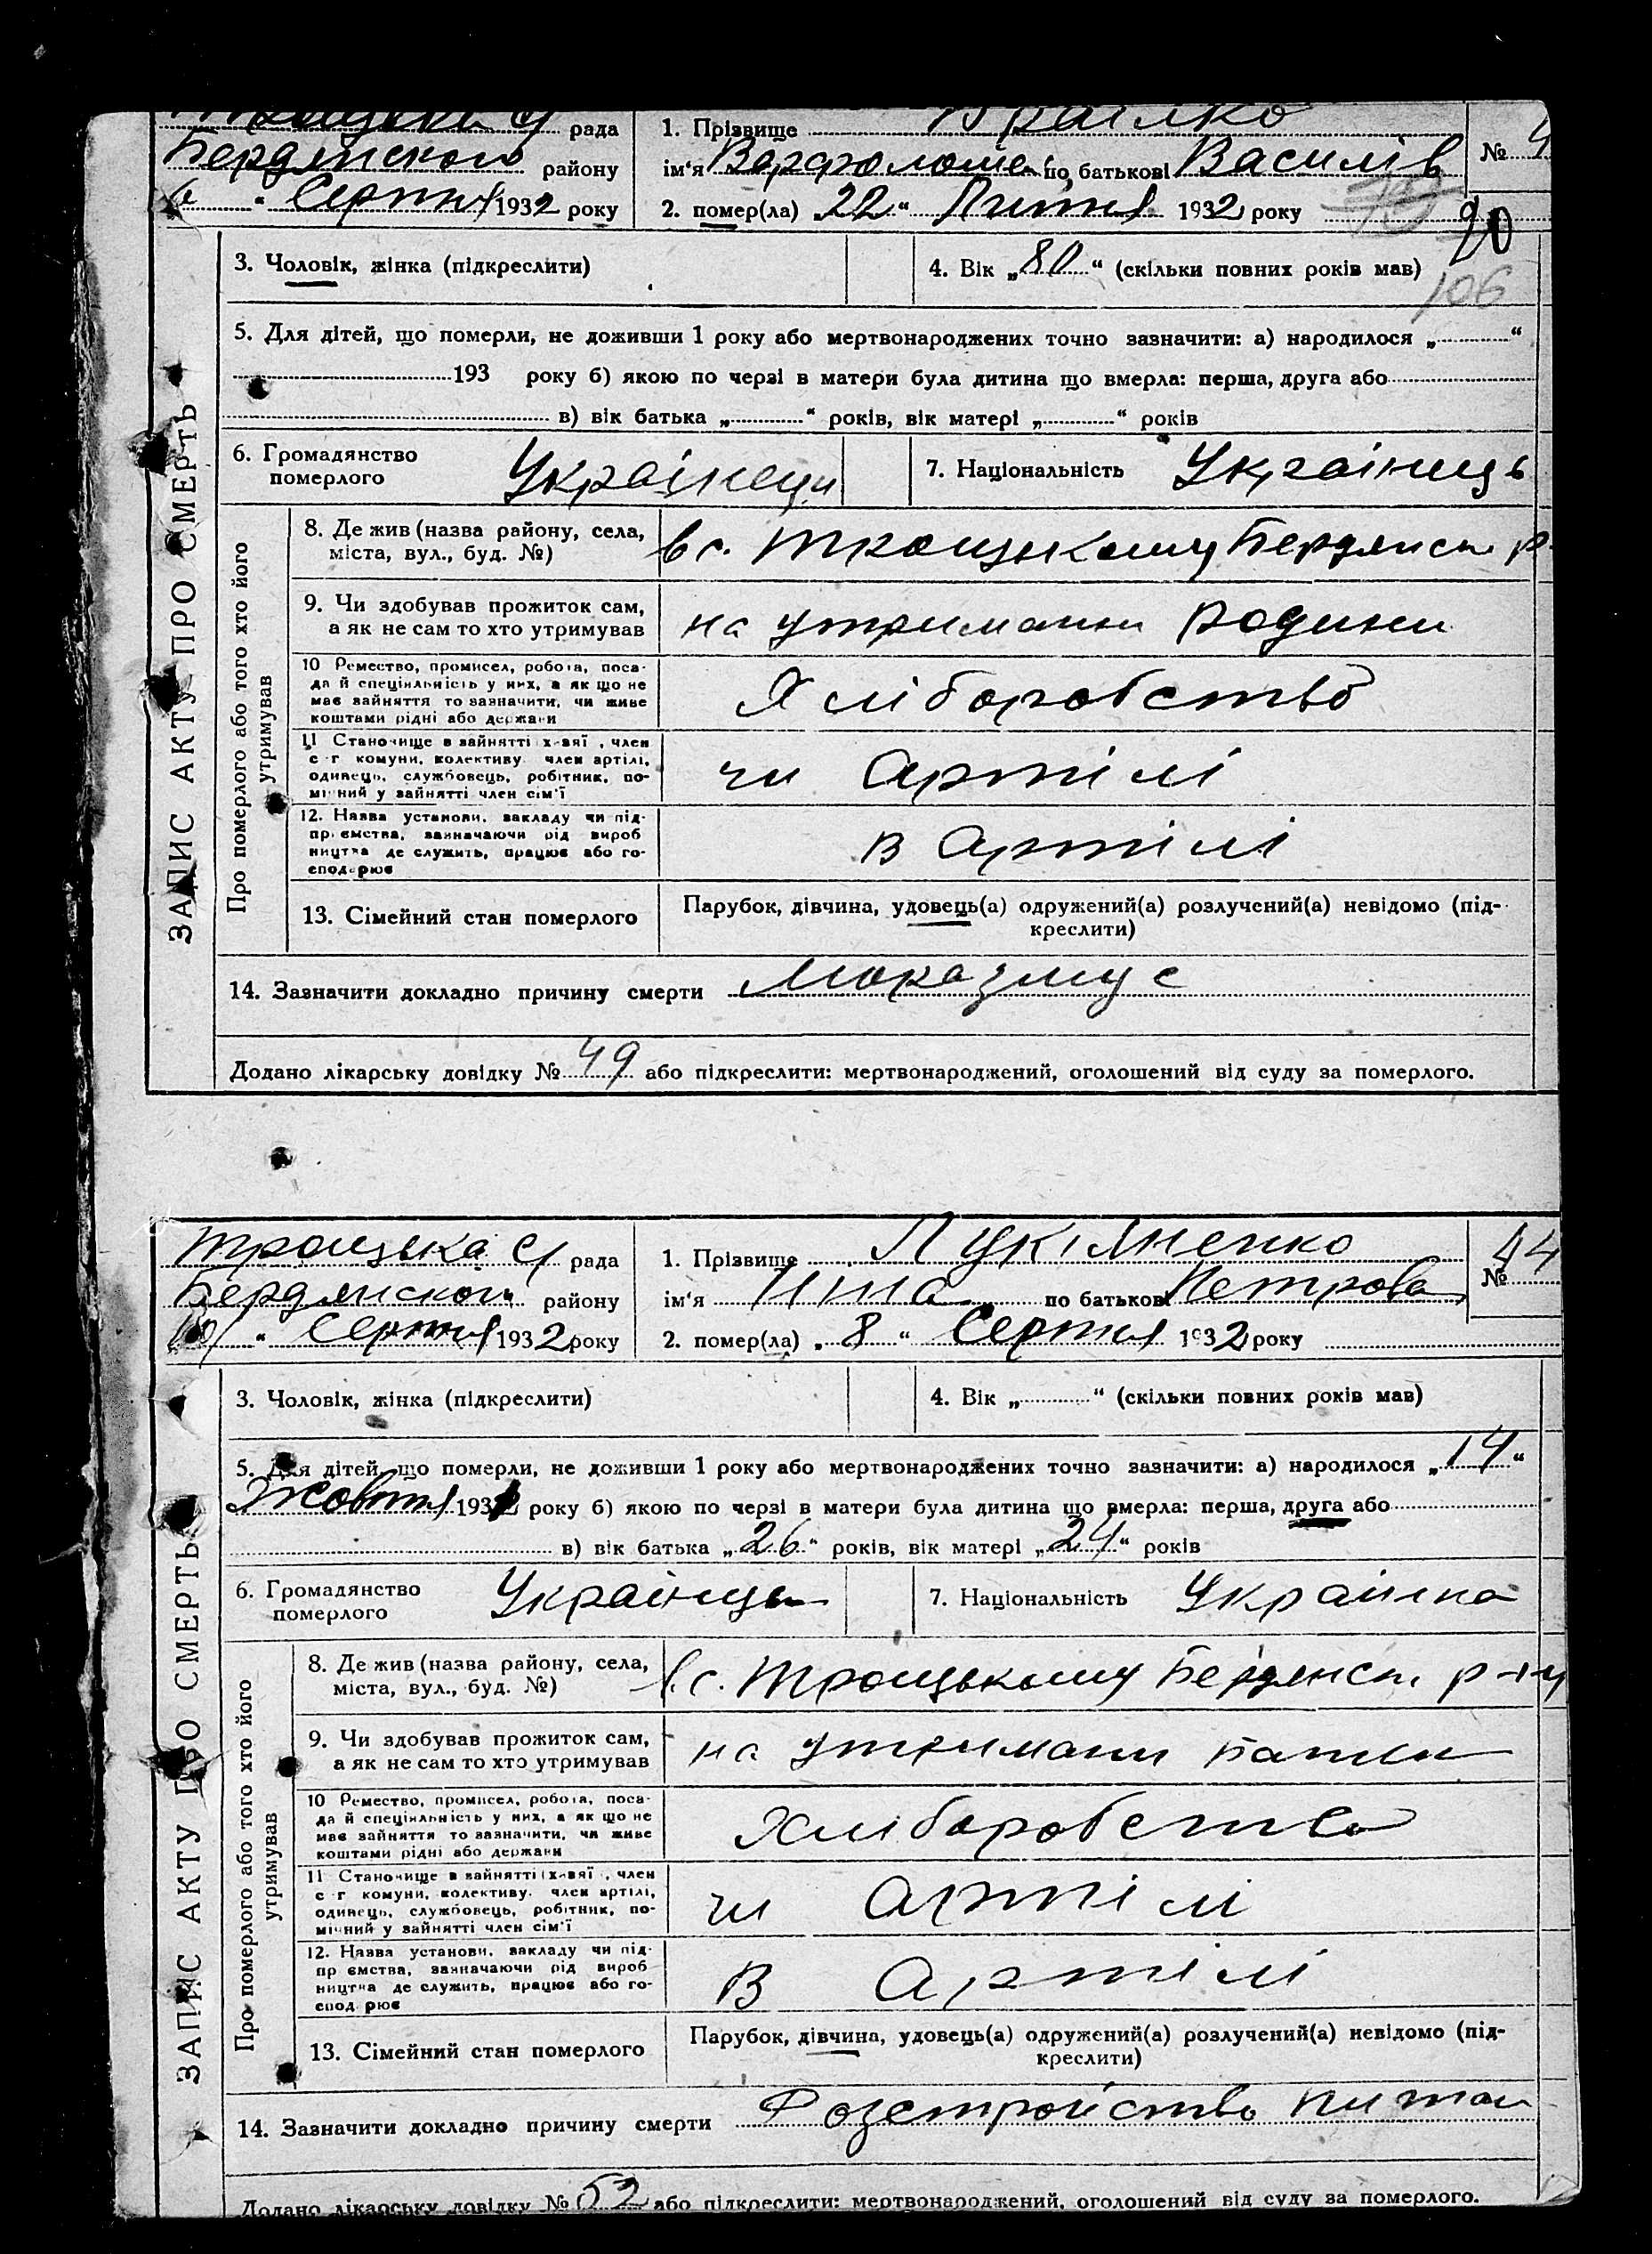 рада
1. Прізвище Браілко
№ 4
Бердянского району
ім'я Варфоломей по батькові Василів
6 " Серпня 1932 року
2. помер(ла) „22“ Липня 1932 року
90
106
3. Чоловік, жінка (підкреслити)
4. Вік „80“ (скільки повних років мав)
5. Для дітей, що померли, не доживши 1 року або мертвонароджених точно зазначити: а) народилося „ “
193 року б) якою по черзі в матери була дитина що вмерла: перша, друга або
в) вік батька „ “ років, вік матері „ “ років
6. Громадянство
померлого
Українець
7. Національність Українець
ЗАПИС АКТУ ПРО СМЕРТЬ
Про померлого або того хто його
утримував
8. Де жив (назва району, села,
міста, вул., буд. №)
в с. Троицькому Бердянськ р
9. Чи здобував прожиток сам,
а як не сам то хто утримував
на утриманни Родини
10 Ремество, промисел, робота, поса-
да й спеціяльність у них, а як що не
має зайняття то зазначити, чи живе
коштами рідні або держави
Хліборобство
11 Становище в зайнятті х-зяї , член
с-г комуни, колективу член артілі,
одинець, службовець, робітник, по-
мічний у зайнятті член сім'ї
чл Артілі
12. Назва установи, закладу чи під-
пр ємства, зазначаючи рід вироб
ництва де служить, працює або го-
сподарює
В Артілі
13. Сімейний стан померлого
Парубок, дівчина, удовець(а) одружений(а) розлучений(а) невідомо (під-
креслити)
14. Зазначити докладно причину смерти Моразмус
Додано лікарську довідку № 49 або підкреслити: мертвонароджений, оголошений від суду за померлого.
Троицька С/ рада
1. Прізвище Лукіяненко
№ 44
Бердянской району
ім'я Нина по батькові Петрова
10 " Серпня 1932 року
2. помер(ла) „8“ Серпня 1932 року
3. Чоловік, жінка (підкреслити)
4. Вік „ “ (скільки повних років мав)
5. Для дітей, що померли, не доживши 1 року або мертвонароджених точно зазначити: а) народилося „14“
Жовтня 1931 року б) якою по черзі в матери була дитина що вмерла: перша, друга або
в) вік батька „26“ років, вік матері „24“ років
6. Громадянство
померлого
Українць
7. Національність Українка
ЗАПИС АКТУ ПРО СМЕРТЬ
Про померлого або того хто його
утримував
8. Де жив (назва району, села,
міста, вул., буд. №)
в с. Троицькому Бердянськ. р-ну
9. Чи здобував прожиток сам,
а як не сам то хто утримував
на утримани Батьки
10 Ремество, промисел, робота, поса-
да й спеціяльність у них, а як що не
має зайняття то зазначити, чи живе
коштами рідні або держави
Хліборобство
11 Становище в зайнятті (х-зяї , член
с-г комуни, колективу, член артілі,
одинець, службовець, робітник, по-
мічний у зайнятті член сім'ї
чл Артілі
12. Назва установи, закладу чи під-
пр ємства, зазначаючи рід вироб
ництва де служить, працює або го-
спод рює
В Артілі
13. Сімейний стан померлого
Парубок, дівчина, удовець(а) одружений(а) розлучений(а) невідомо (під-
креслити)
14. Зазначити докладно причину смерти Розстройство питан
Додано лікарську довідку № 52 або підкреслити: мертвонароджений, оголошений від суду за померлого.